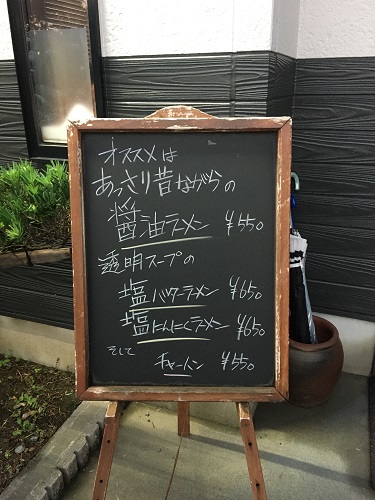 オススメは
あっさり昔ながらの
醤油ラーメン ¥550
透明スープの
塩バターラーメン ¥650
塩にんにくラーメン ¥650
そして
チャーハン ¥550